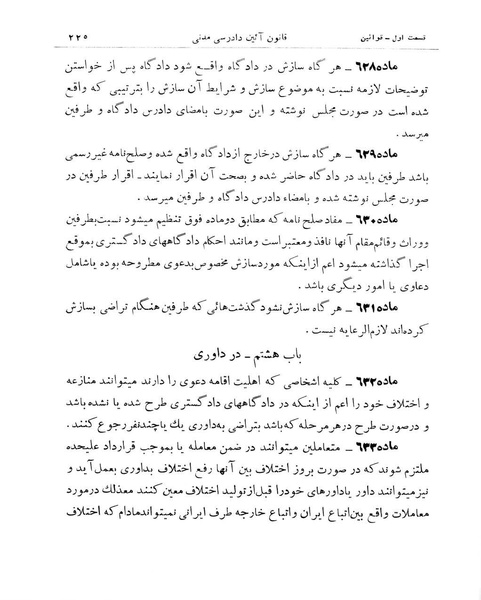 قسمت اول ــ قوانین قانون آئین دادرسی مدنی ۲۲۵
ماده۶۲۸ ــ هر گاه سازش در دادگاه واقع شود دادگاه پس از خواستن
توضیحات لازمه نسبت به موضوع سازش و شرایط آن سازش را بترتیبی که واقع
شده است در صورت مجلس نوشته و این صورت بامضای دادرس دادگاه و طرفین
میرسد .
ماده۶۲۹ ــ هر گاه سازش درخارج ازدادگاه واقع شده وصلح‌نامه غیررسمی
باشد طرفین باید در دادگاه حاضر شده و بصحت آن اقرار نمایند ــ اقرار طرفین در
صورت مجلس نوشته شده و بامضاء دادرس دادگاه و طرفین میرسد .
ماده۶۳۰ ــ مفاد صلح نامه که مطابق دوماده فوق تنظیم میشود نسبت بطرفین
ووراث وقائم‌مقام آنها نافذ ومعتبراست ومانند احکام دادگاههای دادگستری بموقع
اجرا گذاشته میشود اعم ازاینکه موردسازش مخصوص‌بدعوی مطروحه بوده یاشامل
دعاوی یا امور دیگری باشد .
ماده۶۳۱ ــ هر گاه سازش نشود گذشت‌هائی که طرفین هنگام تراضی بسازش
کرده‌اند لازم‌الرعایه نیست .
باب هشتم ــ در داوری
ماده۶۳۲ ــ کلیه اشخاصی که اهلیت اقامه دعوی را دارند میتوانند منازعه
و اختلاف خود را اعم از اینکه در دادگاههای دادگستری طرح شده یا نشده باشد
و درصورت طرح درهرمرحله‌که باشد بتراضی به‌داوری یك یاچندنفررجوع کنند .
ماده۶۳۳ ــ متعاملین میتوانند در ضمن معامله یا بموجب قرارداد علیحده
ملتزم شوندکه در صورت بروز اختلاف بین آنها رفع اختلاف بداوری بعمل آید و
نیزمیتوانند داور یاداورهای خودرا قبل‌ازتولید اختلاف معین کنند معذلك درمورد
معاملات واقع بین‌اتباع ایران واتباع خارجه طرف ایرانی نمیتواندمادام‌که اختلاف